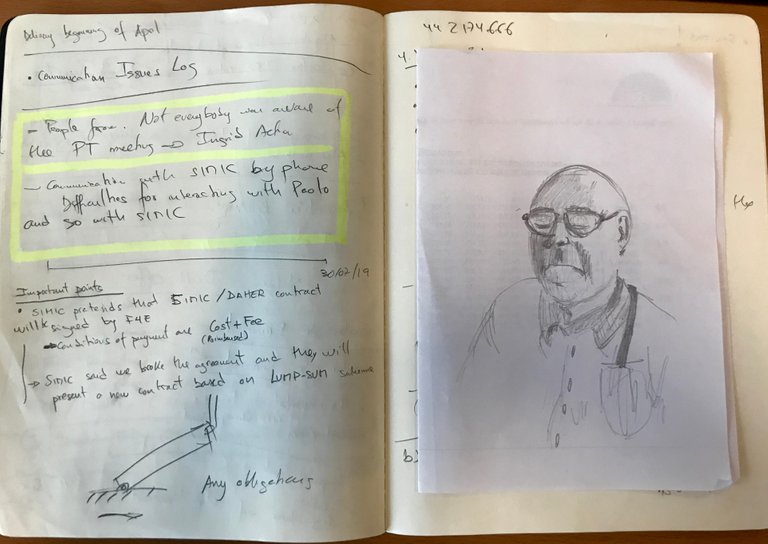 Delivery beginning of Apol
• Communication Issues Log
– People from. Not everybody was aware of
the PT meeting → Ingrid Acha
– Communication with SIMIC by phone
Difficulties for interacting with Paolo
and so with SIMIC
30/07/19
Important points
• SIMIC pretends that SIMIC/DAHER contract
will be signed by F4E
→ Conditions of payment are Cost+Fee
(Reimbursed)
→ SIMIC said we broke the agreement and they will
present a new contract based on LUMP-SUM scheme
Any obligations
44 2174.666